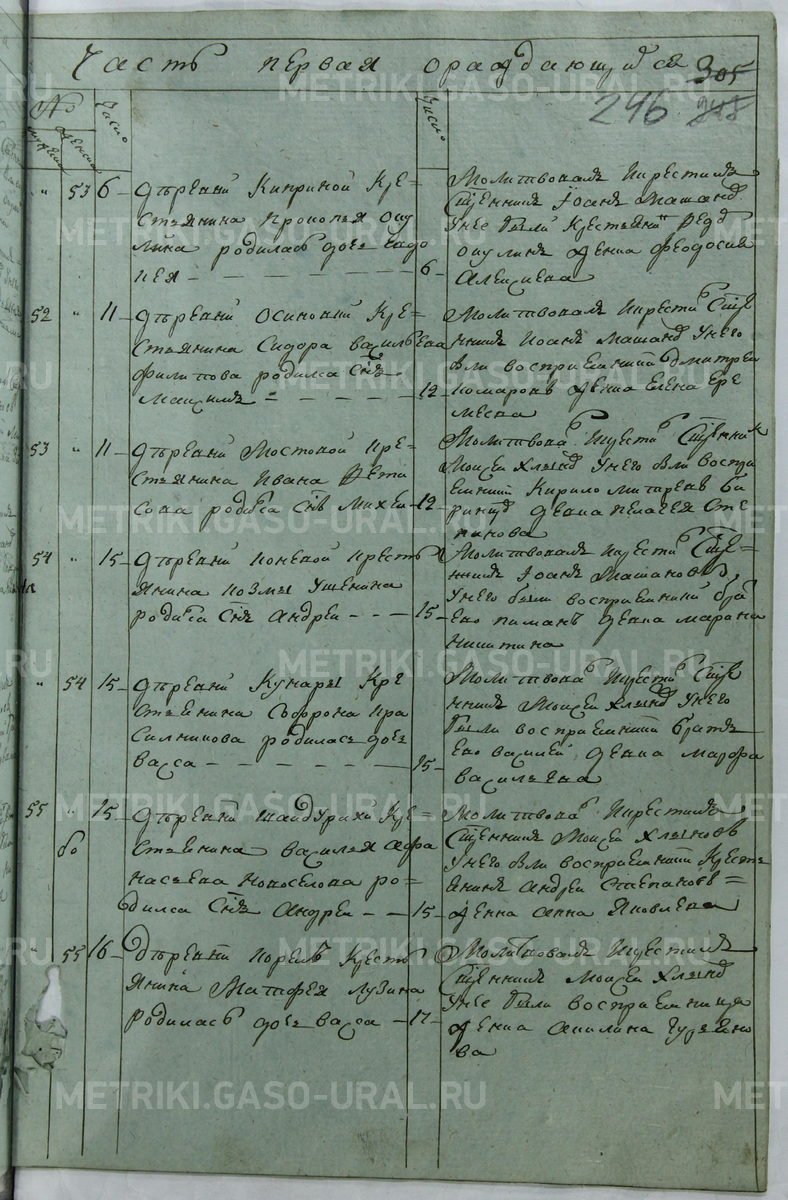 Часть первая ораждающихся
305
246
№
Число
Число
53 6 Дѣревни Киприной кре=
стьянина Прокопья Оку
лина родилась дочь Евдо
кея
6
Молитвовалъ икрестилъ
Священникъ Іоанъ Машанов
унее были крестьянинъ Ѳедо
Окулинъ девка Феодосия
Алексиева
52 " 11 Дѣревни Осиновки кре=
стьянина Сидора Васильева
Филипова родился Снъ
Максимъ
12
Молитвовалъ икрестил Свще
нникъ Иоанъ Машанов унего
были восприемники Дмитреи
Комаровъ девка Елена Ере
меева
53 " 11 Дѣревни Мостовой кре=
стьянина Ивана Фети
сова родился Снъ Михеи
12
Молитвовал икрестил Свщенник
Моисеи Хлынов унего были воспри
емники Кирило Митревъ
девка Пелагея Сте
панова
54 " 15 Дѣревни Коневой кресть
янина Козмы Ушенина
родился Снъ Андреи
15
Молитвовалъ икрестил Свще=
нникъ Іоанъ Машановъ
унего были восприемники бра
ево Пиманъ девка Марина
Никитина
" 54 15 Дѣревни Кунары кре
стьянина Софрона Кра
силникова родилась дочь
Васса
15
Молитвовал икрестил Свще
нникъ Моисеи Хлынов унего
были восприемники братъ
ево Василеи девка Марфа
Васильева
55 " 15 Дѣревни Шайдурихи кре=
стьянина Василья Афа
насьева Новоселова ро=
дился Снъ Андреи
15
Молитвовал икрестилъ
Священникъ Моисеи Хлыновъ
унего были восприемники кресть
янинъ Андреи Степановъ=
девка Анна Яковлева
" 55 16 Дѣревни Корелъ кресть
янина Матфея Лузина
родилась дочь Васса
17
Молитвовалъ икрестилъ
Священникъ Моисеи Хлынов
унее были восприемница
девка Акилина Гурьяно
ва
METRIKI.GASO-URAL.RU